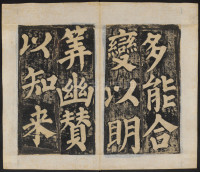 多能合
變以明
筭幽賛
以知来